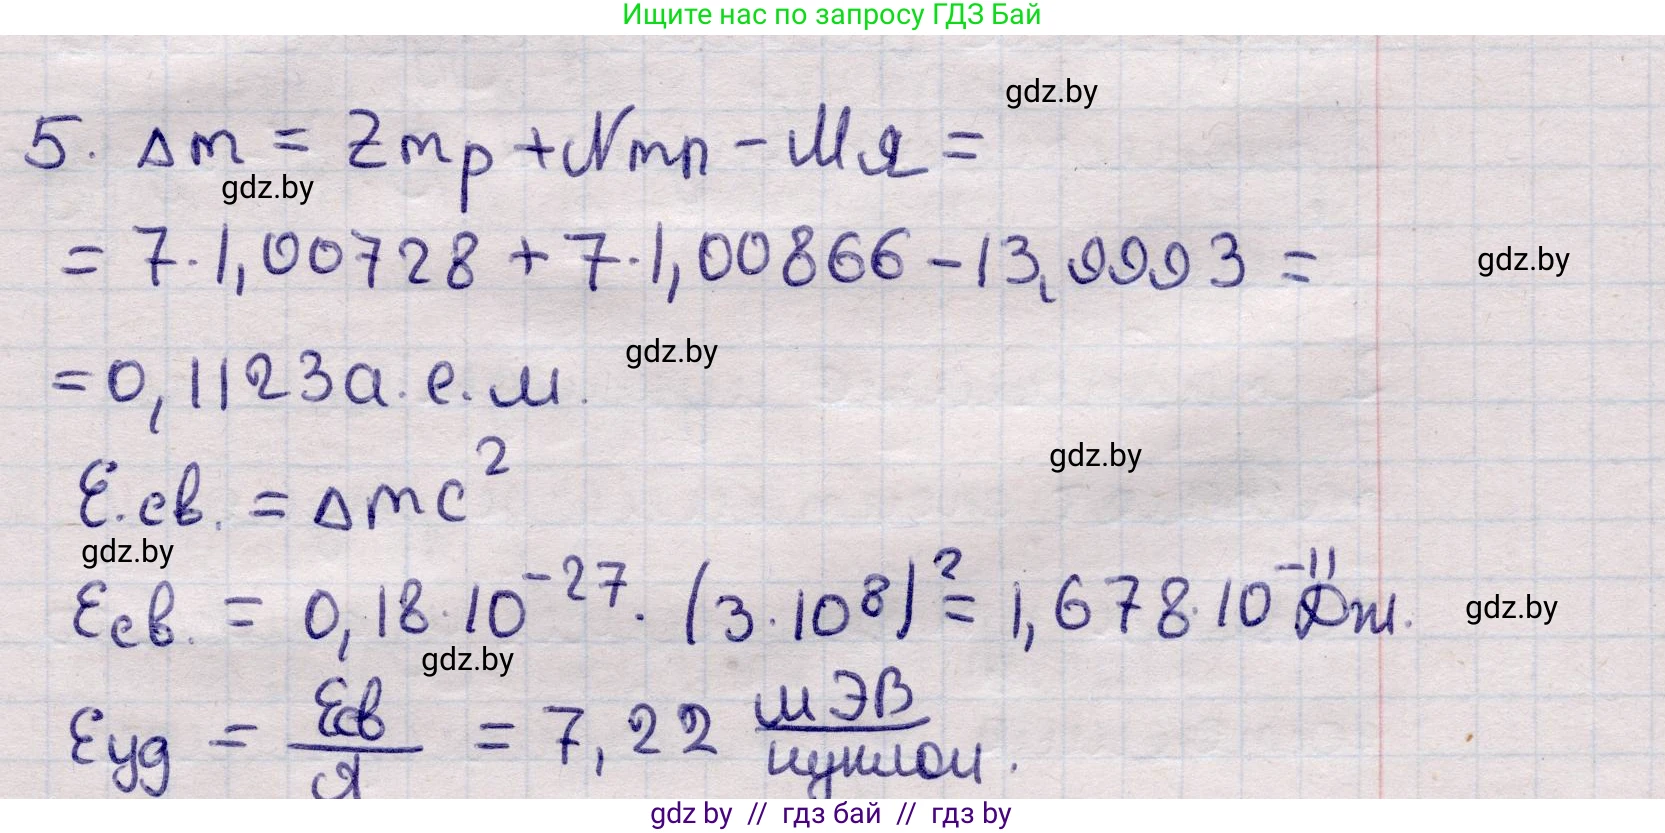 Ищите нас по запросу ГДЗ Бай
gdz.by
5. Δm = Zmp + Nmn - Mя =
gdz.by
= 7·1,00728 + 7·1,00866 - 13,9993 =
gdz.by
gdz.by
= 0,1123 а.е.м.
gdz.by
E.св. = Δmc²
gdz.by
Eсв. = 0,18·10⁻²⁷·(3·10⁸)² = 1,678·10⁻¹¹ Дж.
gdz.by
gdz.by
Eуд = Eсв/A = 7,22 МЭВ/нуклон.
gdz by // гдз бай // гдз by